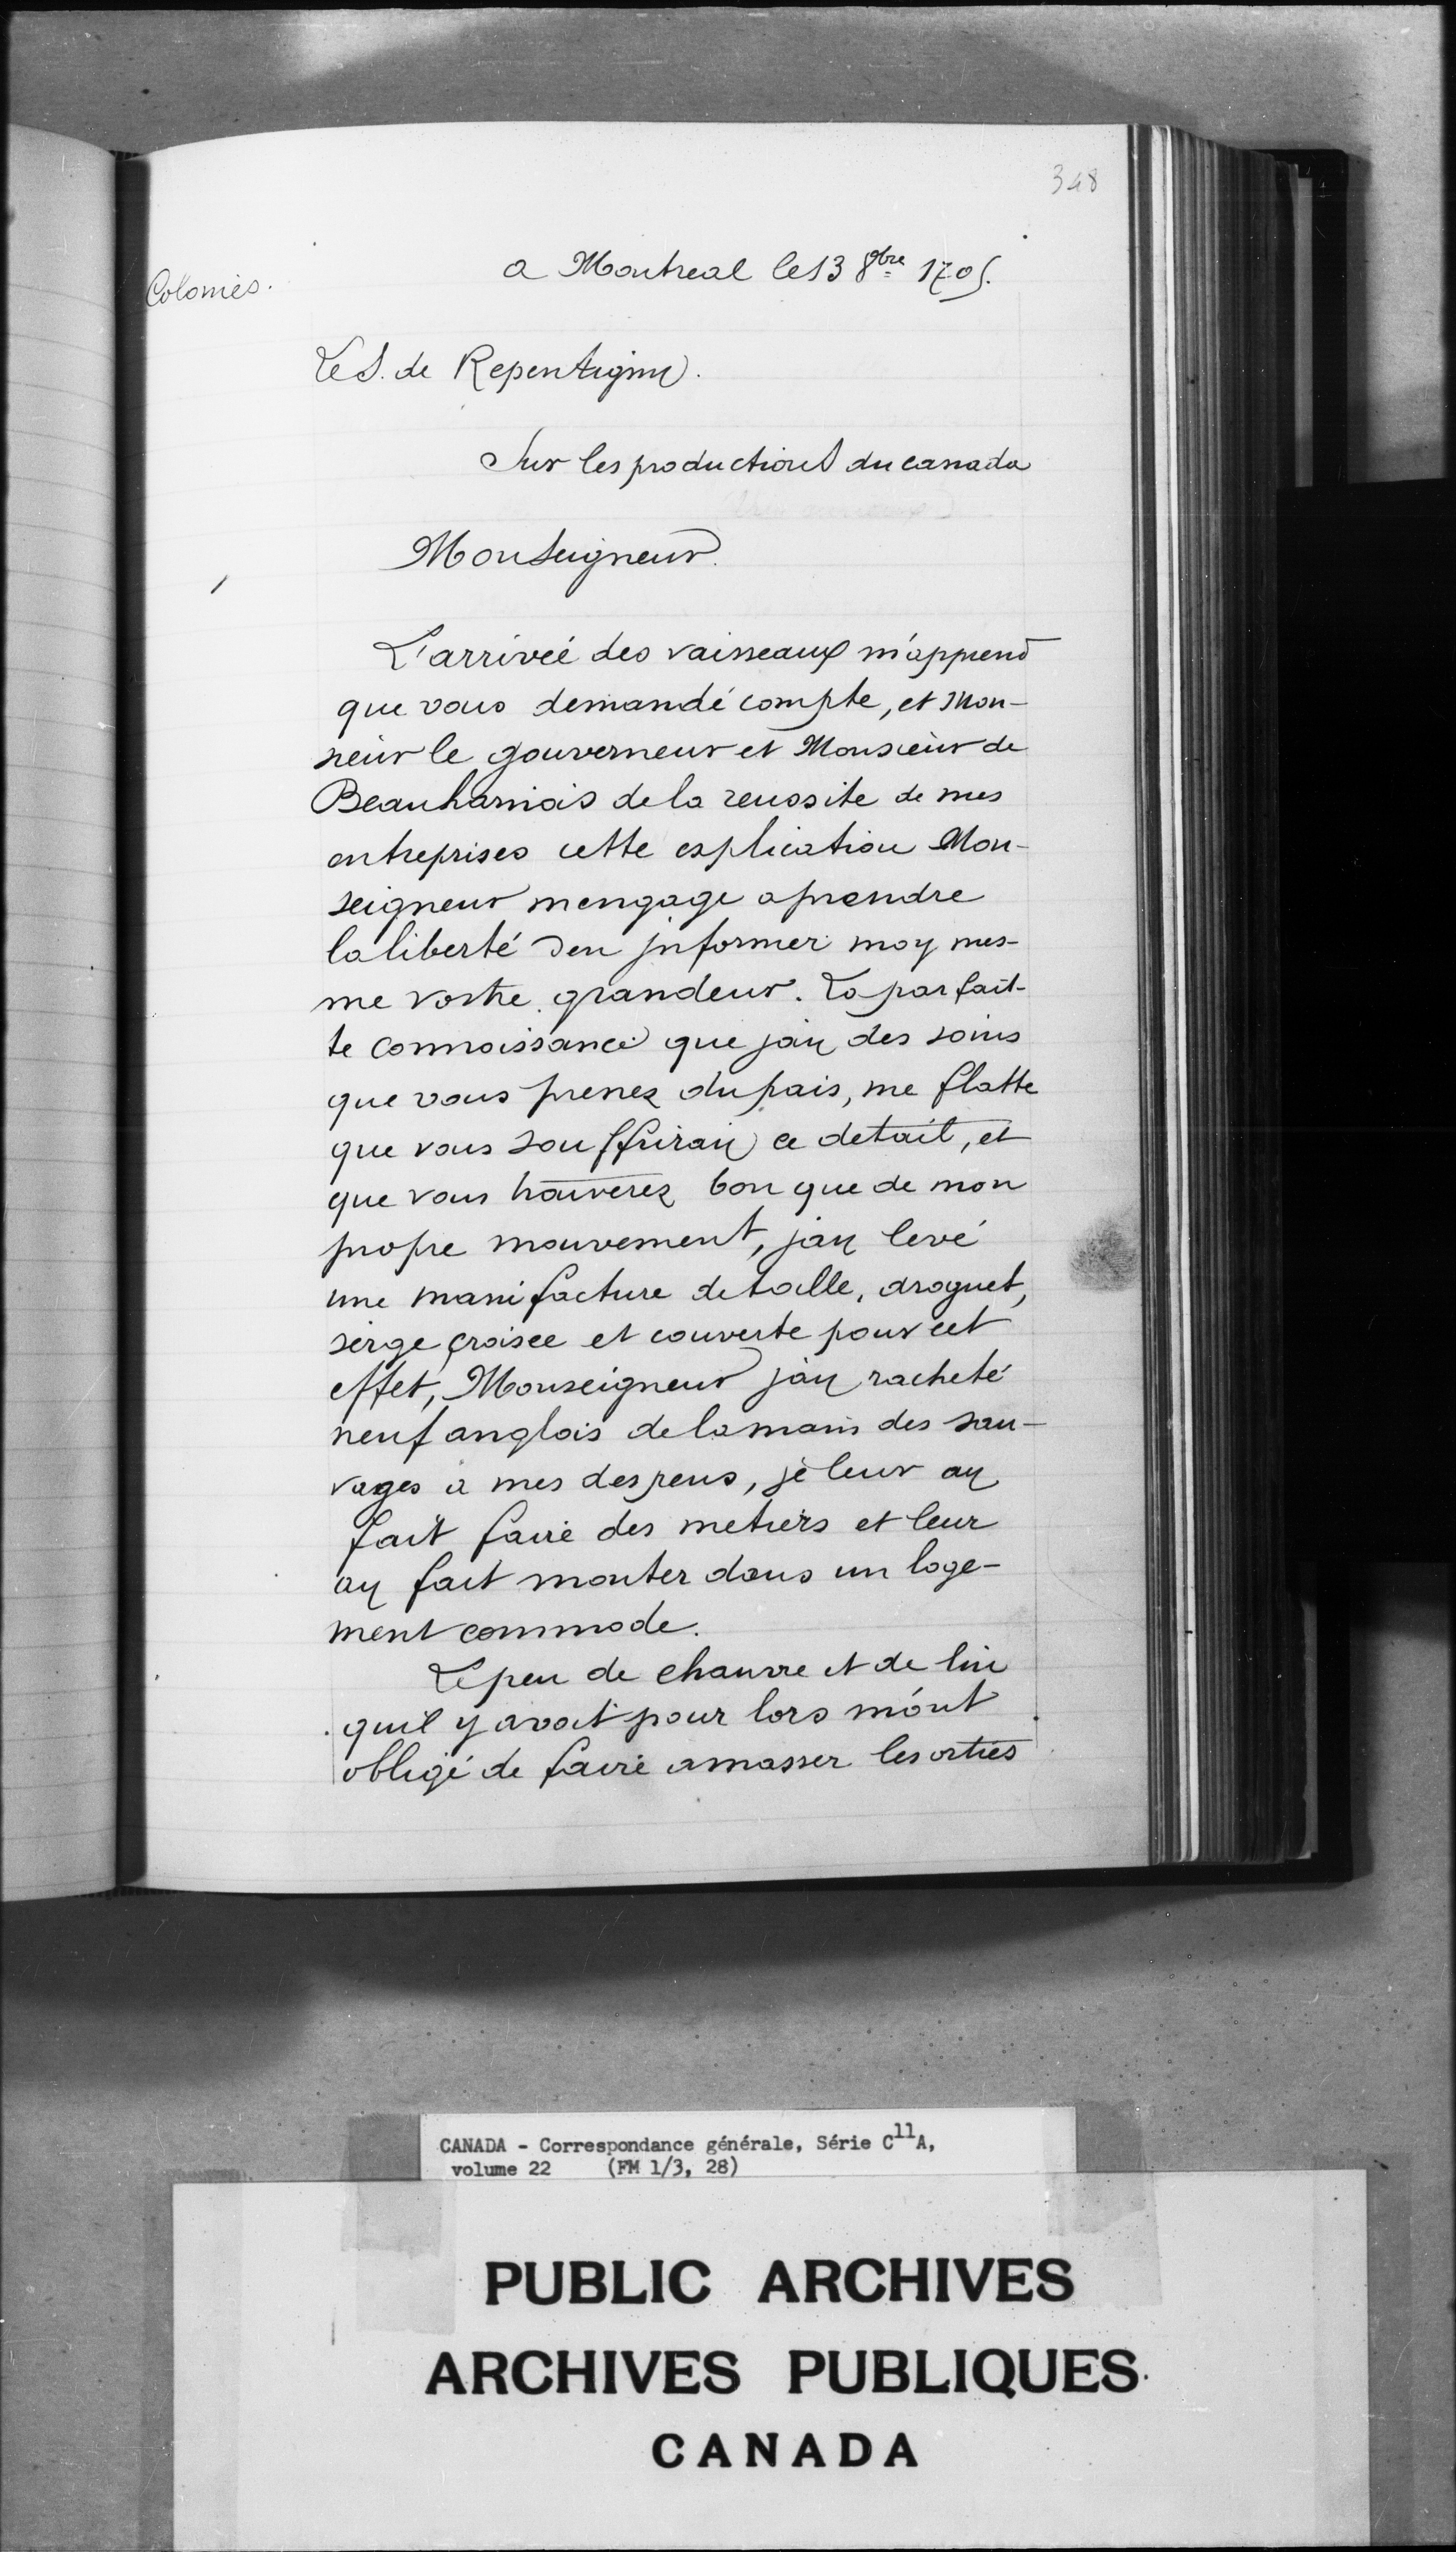 348
Colonies.
a Montreal le 13 8bre 1705.
Le S. de Repentigny.
Sur les productions du canada
Monseigneur.
L'arriveé des vaisseaux m'apprend
que vous demandé compte, et Mon-
sieur le gouverneur et Monsieur de
Beauharnois de la reussite de mes
entreprises cette explication Mon-
seigneur mengage a prendre
la liberté den jnformer moy mes-
me vostre grandeur. La parfait-
te connoissance que jay des soins
que vous prenez du pais, me flatte
que vous souffriray ce detail, et
que vous trouverez bon que de mon
propre mouvement, jay levé
une manifacture de toille, droguet,
serge croisee et couverte pour cet
effet, Monseigneur jay racheté
neuf anglois de la main des sau-
vages a mes despens, je leur ay
fait faire des metiers et leur
ay fait monter dans un loge-
ment commode.
Le peu de chanvre et de lin
quil y avoit pour lors m'ont
obligé de faire amasser les orties
CANADA - Correspondance générale, Série C11A,
volume 22 (FM 1/3, 28)
PUBLIC ARCHIVES
ARCHIVES PUBLIQUES
CANADA